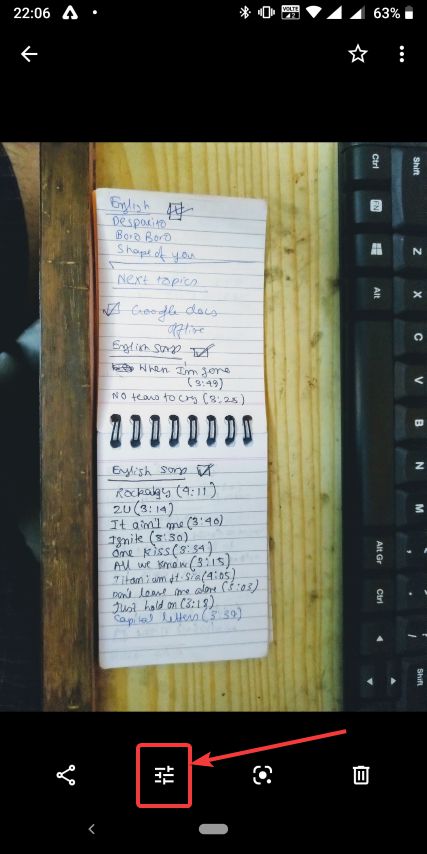 22:06
VOLTE
2
63%
English
Despacito
Boro Boro
Shape of you
Next topics
Google docs
offline
English songs
When I'm gone
(3:49)
NO tears to cry (3:25)
English songs
Rockabye (4:11)
2U (3:14)
It ain't me (3:40)
Ignite (3:30)
One Kiss (3:34)
All we know (3:15)
Titanium ft. Sia (4:05)
Don't leave me alone (3:03)
Just hold on (3:18)
Capital letters (3:39)
Shift
Ctrl
Fn
Z
Alt
X
C
V
B
N
M
Alt Gr
Ctrl
Shift